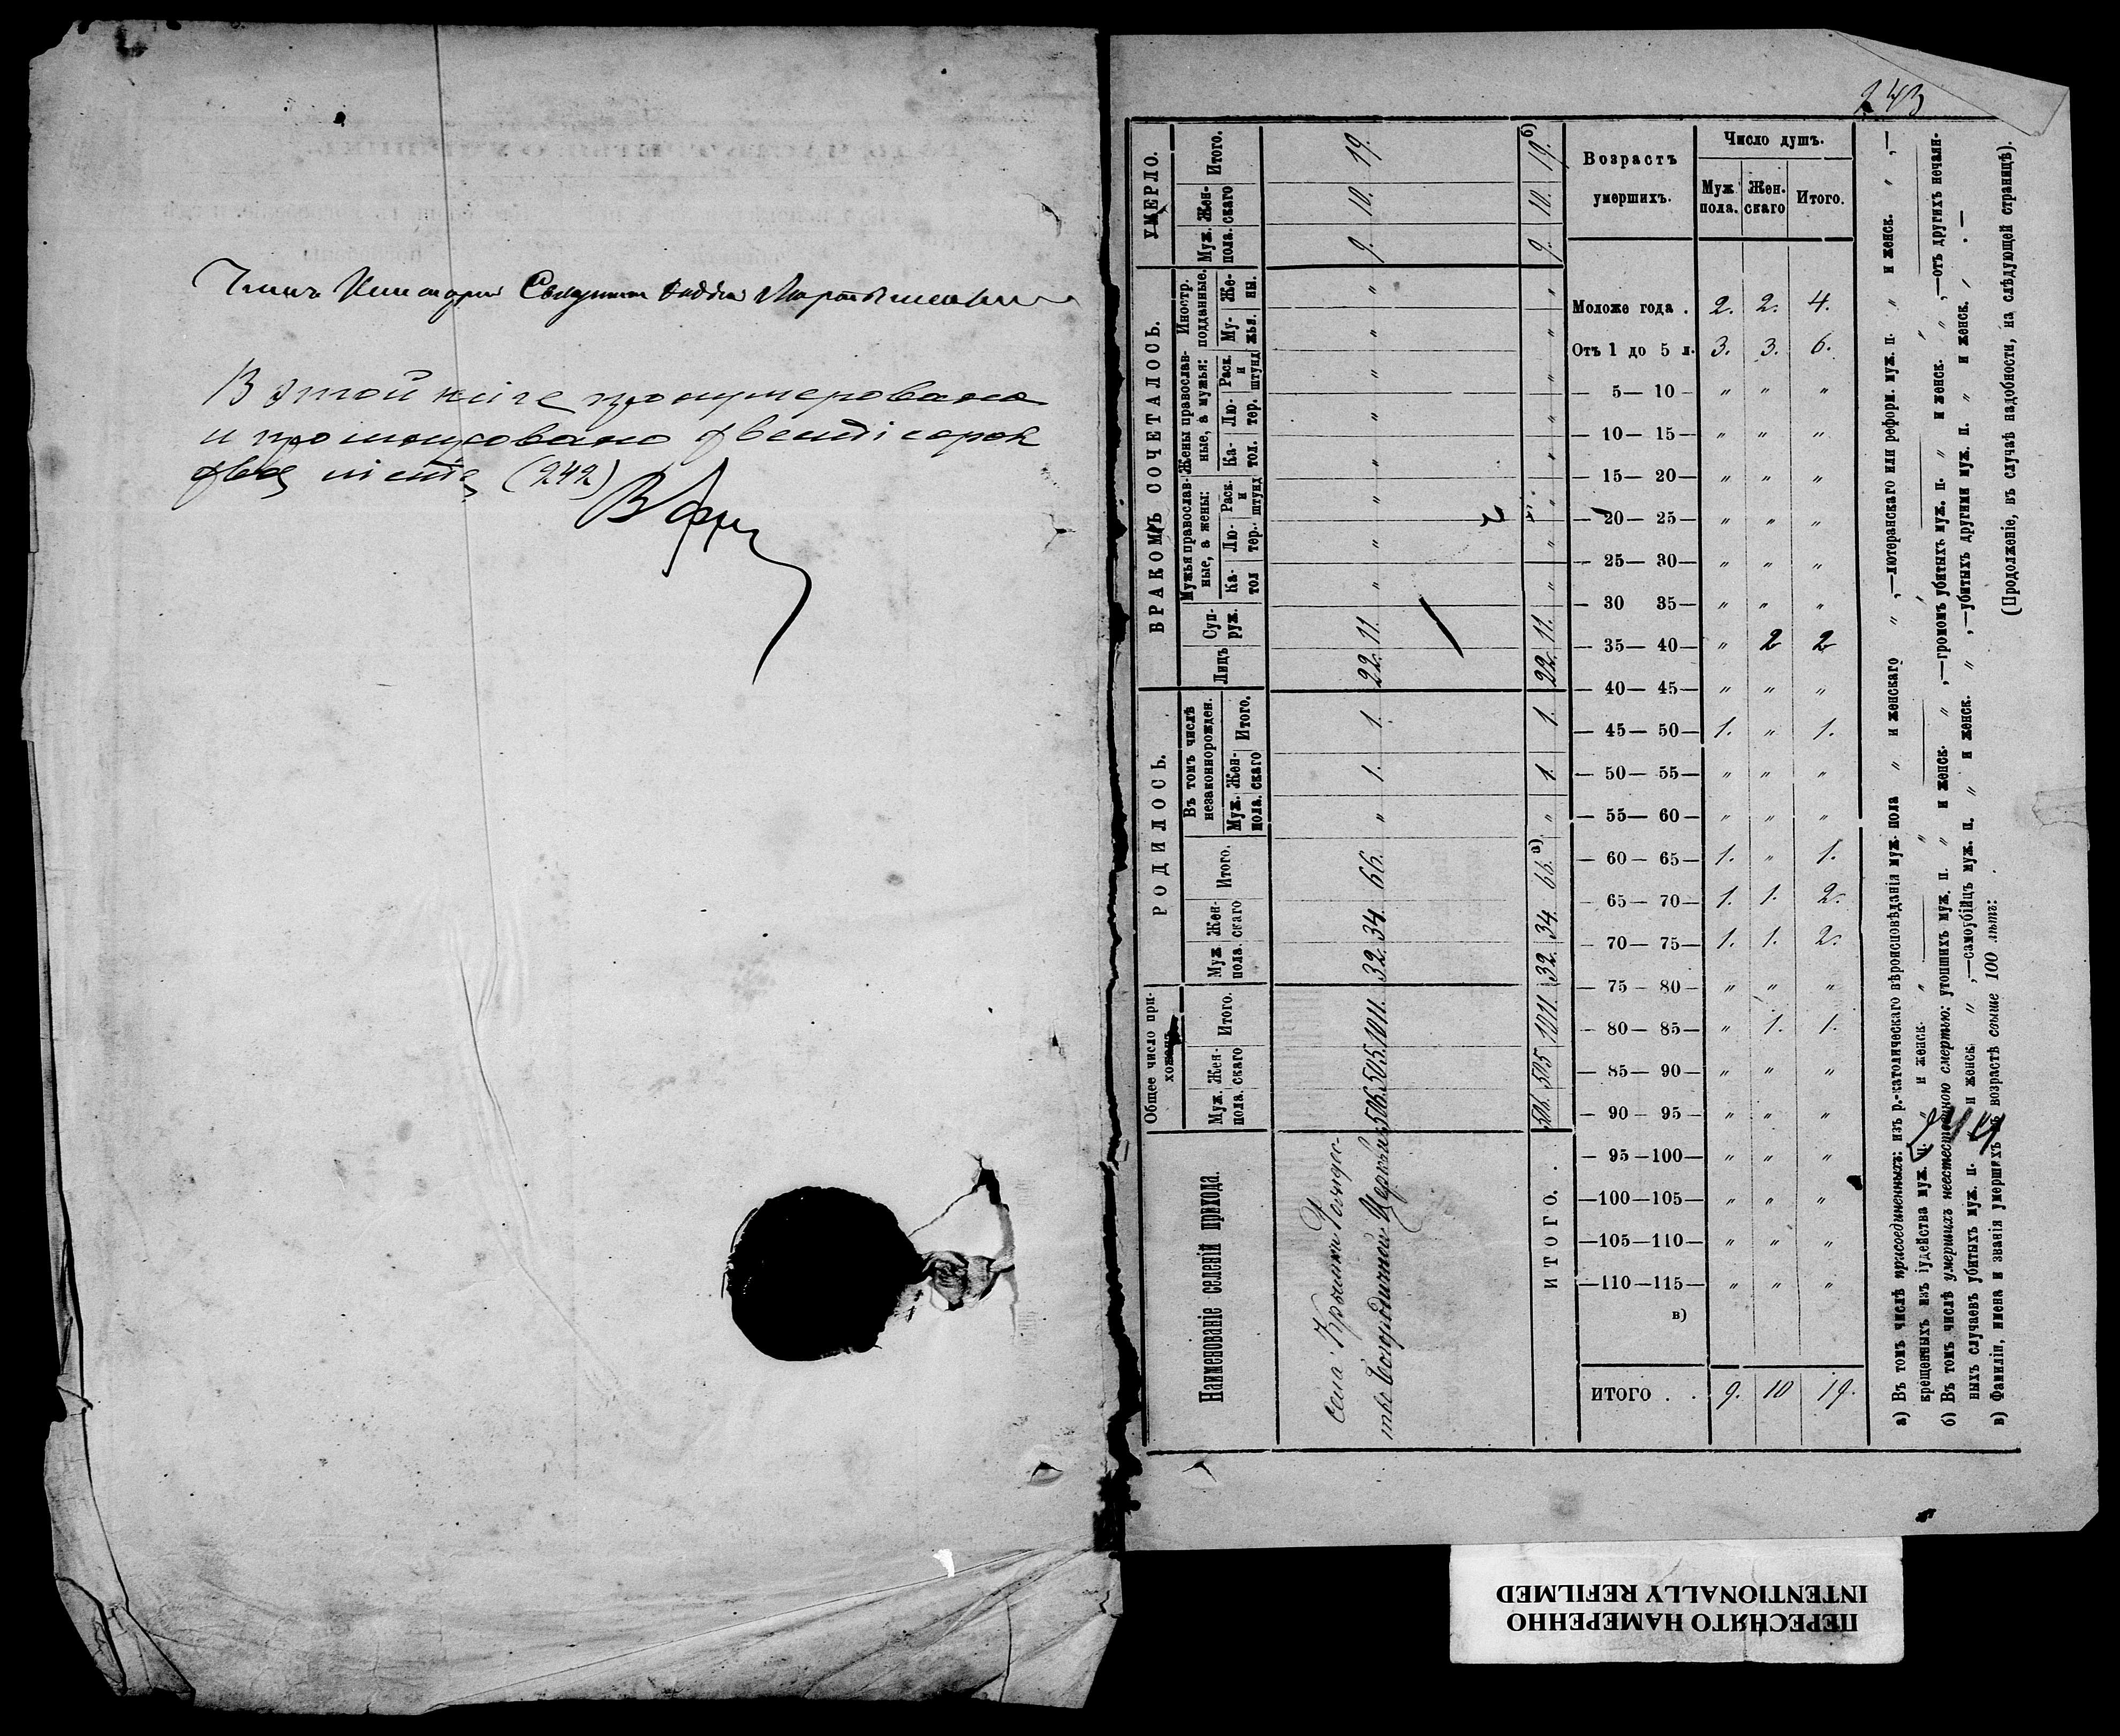 Членъ Консисторіи Священникъ
В этой книге пронумеровано
и прошнуровано двести сорок
два листа (242)
243
Наименованіе селеній прихода.
Общее число прихожанъ.
Муж. пола. Жен-скаго Итого.
РОДИЛОСЬ.
Муж. пола. Жен-скаго Итого.
Въ томъ числѣ незаконнорожден.
Муж. пола. Жен-скаго Итого.
ВРАКОМЪ СОЧЕТАЛОСЬ.
Лицъ Суп-руж.
Мужья православ-ные, а жены:
Ка-тол Лю-тер. Раск. и штунд
Жены православ-ные, а мужья:
Ка-тол. Лю-тер. Раск. и штунд
Иностр. подданные.
Му-жья. Же-ны.
УМЕРЛО.
Муж. пола. Жен-скаго Итого.
Села
Церкви 506. 505. 1011. 32. 34. 66. " 1. 1. 22. 11. " " " " " " " " 9. 10. 19.
ИТОГО. . 506. 505. 1011. 32. 34. 66. а) " 1. 1. 22. 11. " " " " " " " " 9. 10. 19. б)
Возрастъ умершихъ.
Число душъ.
Муж. пола. Жен-скаго Итого.
Моложе года . 2. 2. 4.
Отъ 1 до 5 л. 3. 3. 6.
— 5— 10 — " " "
— 10— 15— " " "
— 15— 20— " " "
— 20— 25— " " "
— 25— 30— " " "
— 30 35— " " "
— 35— 40— " 2 2
— 40— 45— " " "
— 45— 50— 1. " 1.
— 50— 55— " " "
— 55— 60— " " "
— 60— 65— 1. " 1.
— 65— 70— 1. 1. 2.
— 70— 75— 1. 1. 2.
— 75— 80— " " "
— 80— 85— " 1. 1.
— 85— 90— " " "
— 90— 95— " " "
— 95—100— " " "
—100—105— " " "
—105—110— " " "
—110—115— " " "
в)
ИТОГО . . 9. 10 19.
а) Въ томъ числѣ присоединенныхъ: изъ р.-католическаго вѣроисповѣданія муж. пола " и женскаго " ,—лютеранскаго или реформ. муж. п. " и женск. " ,—
крещенныхъ изъ іудейства муж. п. " и женск. "
б) Въ томъ числѣ умершихъ неестественною смертью: утопшихъ муж. п. " и женск. " ,—громомъ убитыхъ муж. п. " и женск. " ,—отъ другихъ нечаян-
ныхъ случаевъ убитыхъ муж. п. и женск. " ,—самоубійцъ муж. п. " и женск. " ,—убитыхъ другими муж. п. " и женск. "
в) Фамиліи, имена и званія умершихъ въ возрастѣ свыше 100 лѣтъ:
(Продолженіе, въ случаѣ надобности, на слѣдующей страницѣ).
ПЕРЕСНЯТО НАМЕРЕННО
INTENTIONALLY REFILMED